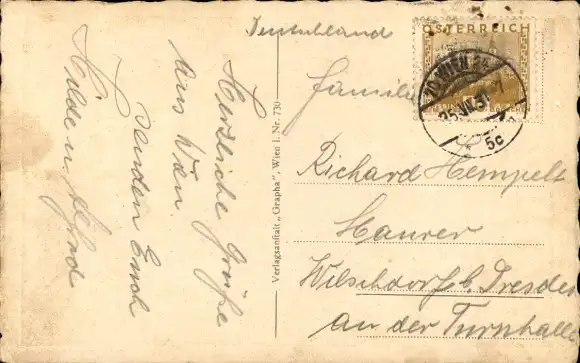 Herzliche Grüße
aus Wien.
senden Euch
Hilde u. Alfred
Verlagsanstalt „Grapha", Wien I. Nr. 730
Deutschland
ÖSTERREICH
WIEN
25.VII.31
5c
Familie
Richard Hempelt
Maurer
Wilschdorf b. Dresden
an der Turnhalle